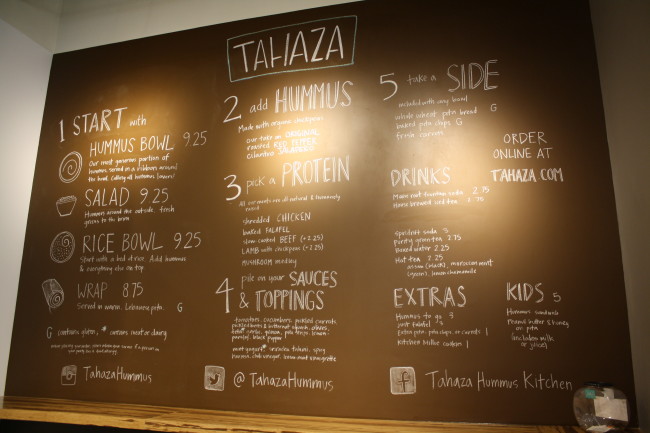 TAHAZA
1 START with
HUMMUS BOWL 9.25
Our most generous portion of
hummus served in a ribbon around
the bowl. Calling all hummus lovers!
SALAD 9.25
Hummus around the outside, fresh
greens to the brim
RICE BOWL 9.25
Start with a bed of rice. Add hummus
& everything else on top
WRAP 8.75
Served in warm, Lebanese pita. G
G contains gluten, * contains meat or dairy
TahazaHummus
2 add HUMMUS
Made with organic chickpeas
our take on ORIGINAL
roasted RED PEPPER
cilantro JALAPEÑO
3 pick a PROTEIN
All our meats are all natural & humanely
raised
shredded CHICKEN
baked FALAFEL
slow cooked BEEF (+2.25)
LAMB with chickpeas (+2.25)
MUSHROOM medley
4 pile on your SAUCES
& TOPPINGS
tomatoes, cucumbers, pickled currants,
pickled & butternut squash, olives,
feta, garlic, quinoa, pita strips, lemon
parsley, black pepper
mint yogurt*, tahini, spicy
harissa, lemon mint vinaigrette
@TahazaHummus
5 take a SIDE
included with any bowl
whole wheat pita bread G
baked pita chips G
fresh carrots
DRINKS
2.75
home brewed iced tea
spindrift soda 3
purity green tea 2.75
boxed water 2.25
hot tea 2.25
assam (black), moroccan mint
(green), lemon chamomile
EXTRAS
Hummus to go
extra pita, pita chips, or carrots 1
kitchen butler cookie 1
ORDER
ONLINE AT
TAHAZA.COM
KIDS 5
Hummus sandwich
Peanut butter & honey
on pita
(includes milk
or juice)
Tahaza Hummus Kitchen